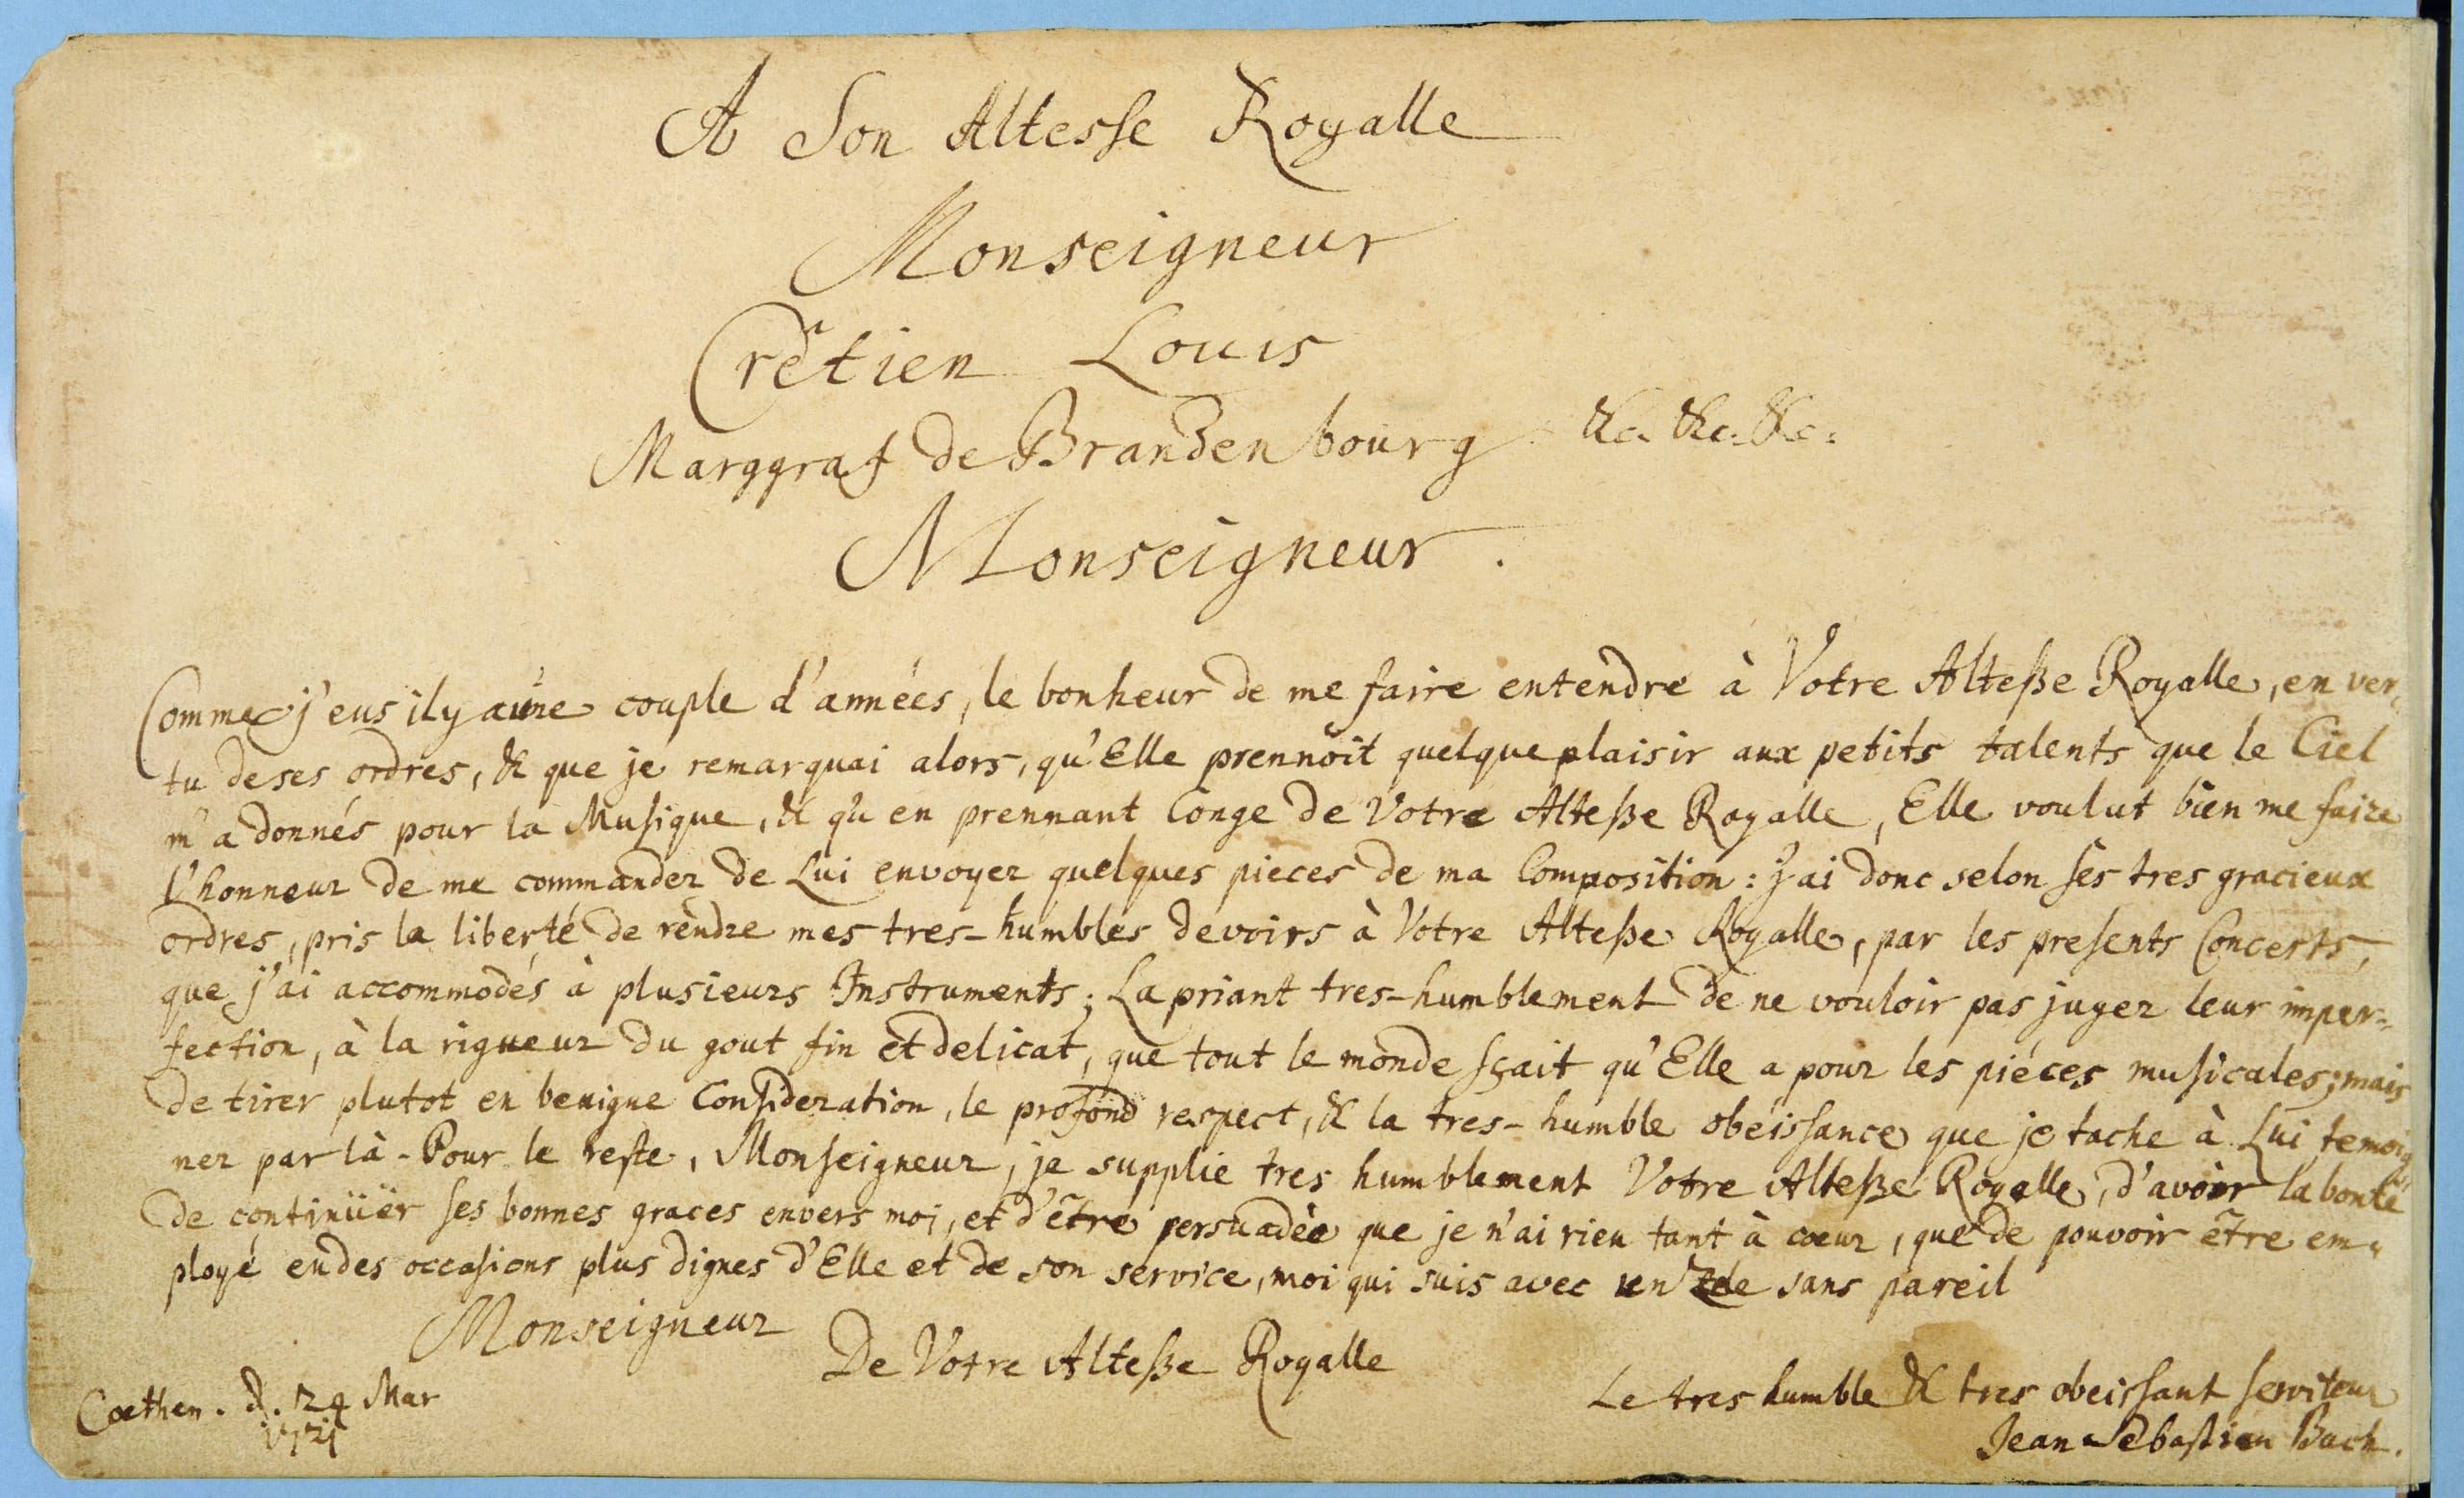 A Son Altesse Royalle
Monseigneur
Crêtien Louis
Marggraf de Brandenbourg &c. &c. &c:
Monseigneur.
Comme j'eus il y a une couple d'années, le bonheur de me faire entendre à Votre Alteße Royalle, en ver-
tu de ses ordres, & que je remarquai alors, qu'Elle prennoit quelque plaisir aux petits talents que le Ciel
m'a donnés pour la Musique, & qu'en prennant Conge de Votre Alteße Royalle, Elle voulut bien me faire
l'honneur de me commander de Lui envoyer quelques pieces de ma Composition: j'ai donc selon ses tres gracieux
ordres, pris la liberté de rendre mes tres-humbles devoirs à Votre Alteße Royalle, par les presents Concerts,
que j'ai accommodés à plusieurs Instruments; La priant tres-humblement de ne vouloir pas juger leur imper-
fection, à la rigueur du gout fin et delicat, que tout le monde sçait qu'Elle a pour les piéces musicales; mais
de tirer plutot en benigne Consideration, le profond respect, & la tres-humble obéissance que je tache à Lui temoig
ner par là. Pour le reste, Monseigneur, je supplie tres humblement Votre Alteße Royalle, d'avoir la bonté
de continüer ses bonnes graces envers moi, et d'être persuadèe que je n'ai rien tant à coeur, que de pouvoir être em-
ployé en des occasions plus dignes d'Elle et de son service, moi qui suis avec un zele sans pareil
Monseigneur
De Votre Alteße Royalle
Coethen. d. 24 Mar
1721
Le tres humble & tres obeissant serviteur
Jean Sebastien Bach.